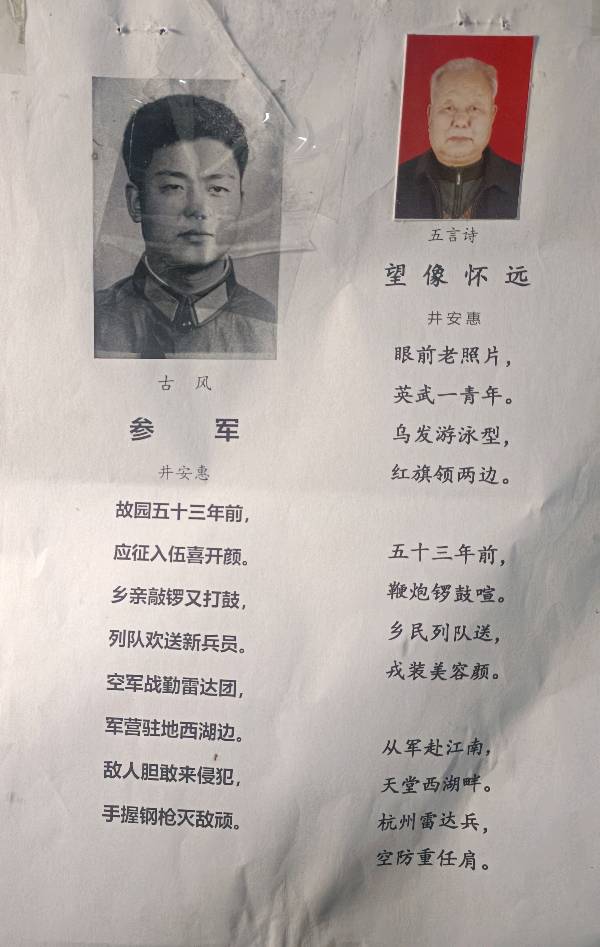 古 风
参 军
井安惠
故园五十三年前，
应征入伍喜开颜。
乡亲敲锣又打鼓，
列队欢送新兵员。
空军战勤雷达团，
军营驻地西湖边。
敌人胆敢来侵犯，
手握钢枪灭敌顽。
五言诗
望像怀远
井安惠
眼前老照片，
英武一青年。
乌发游泳型，
红旗领两边。
五十三年前，
鞭炮锣鼓喧。
乡民列队送，
戎装美容颜。
从军赴江南，
天堂西湖畔。
杭州雷达兵，
空防重任肩。